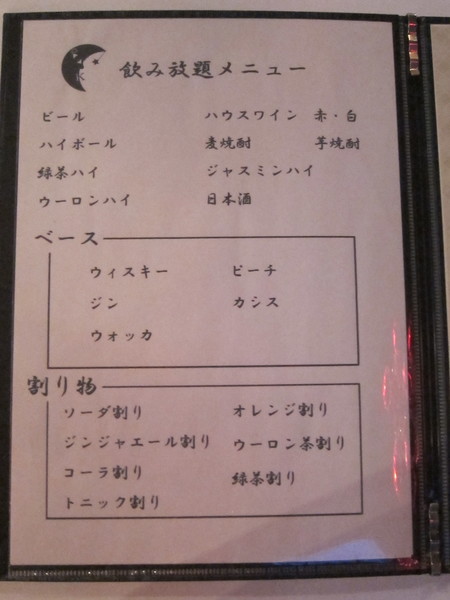 飲み放題メニュー
ビール ハウスワイン 赤・白
ハイボール 麦焼酎 芋焼酎
緑茶ハイ ジャスミンハイ
ウーロンハイ 日本酒
ベース
ウィスキー ピーチ
ジン カシス
ウォッカ
割り物
ソーダ割り オレンジ割り
ジンジャエール割り ウーロン茶割り
コーラ割り 緑茶割り
トニック割り